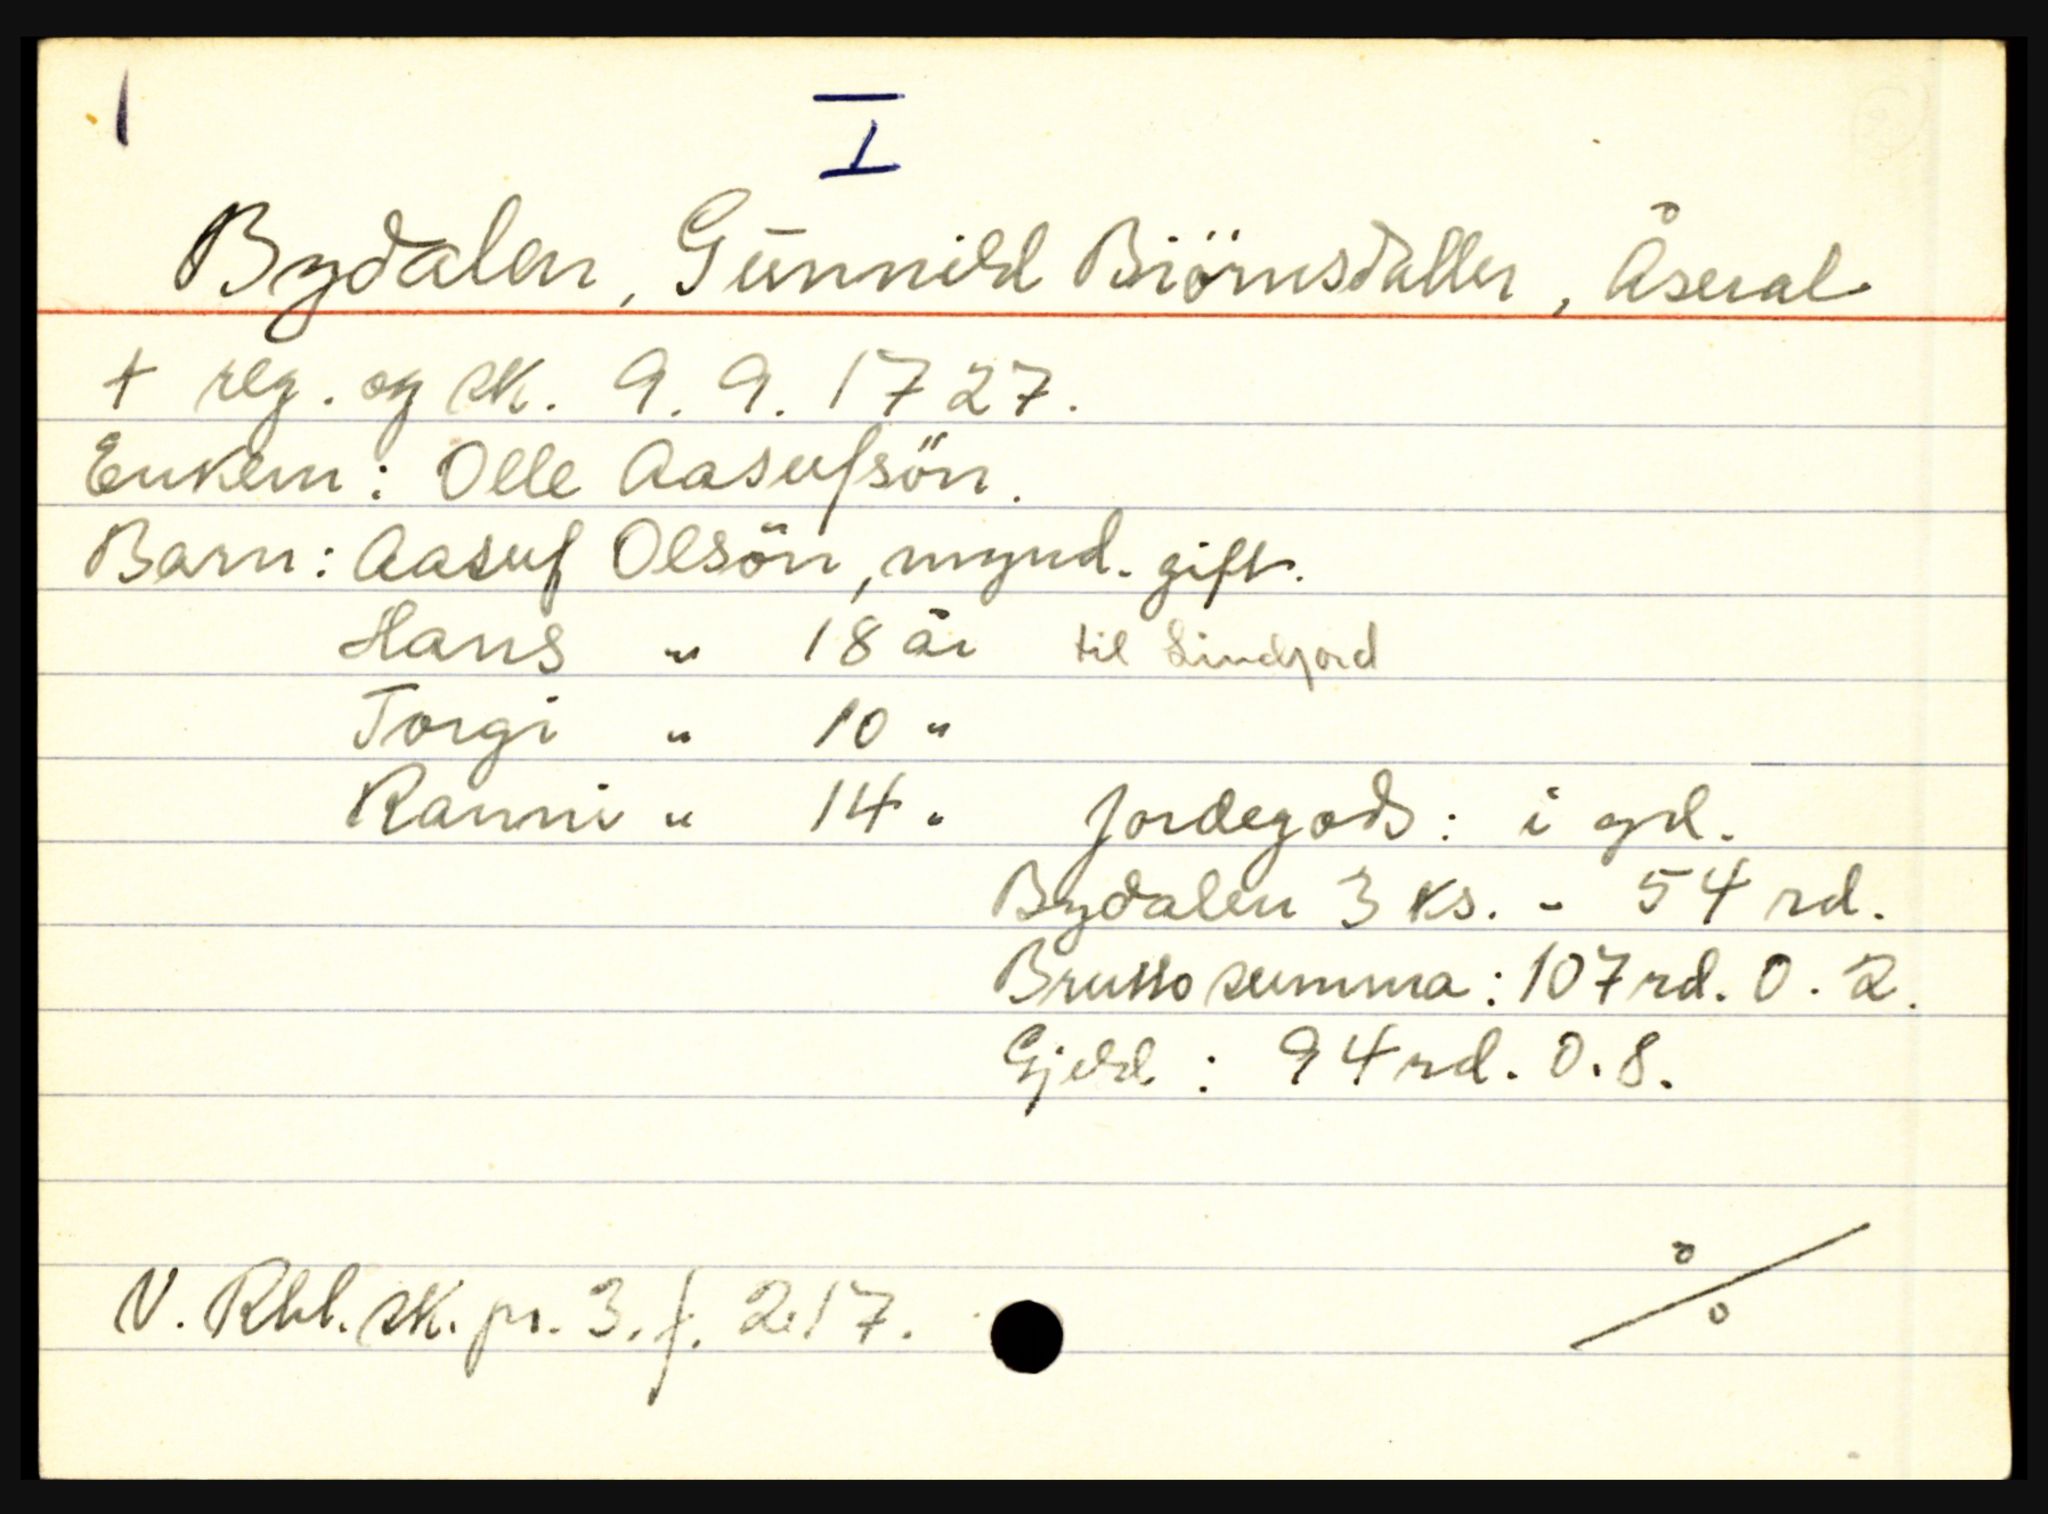 1
I
Bydalen, Gunnild Biörnsdatter, Åseral
+ reg. og sk. 9. 9. 1727.
Enkem: Olle Aasufsön.
Barn: Aasuf Olsön, mynd. gift.
Hans " 18 år til Lindjord
Torgi " 10 "
Ranni " 14 " Jordegods: i grd.
Bydalen 3 ks. - 54 rd.
Brutto summa: 107 rd. 0. 2.
Gjeld: 94 rd. 0. 8.
N. Rbl. sk. pr. 3. f. 217.